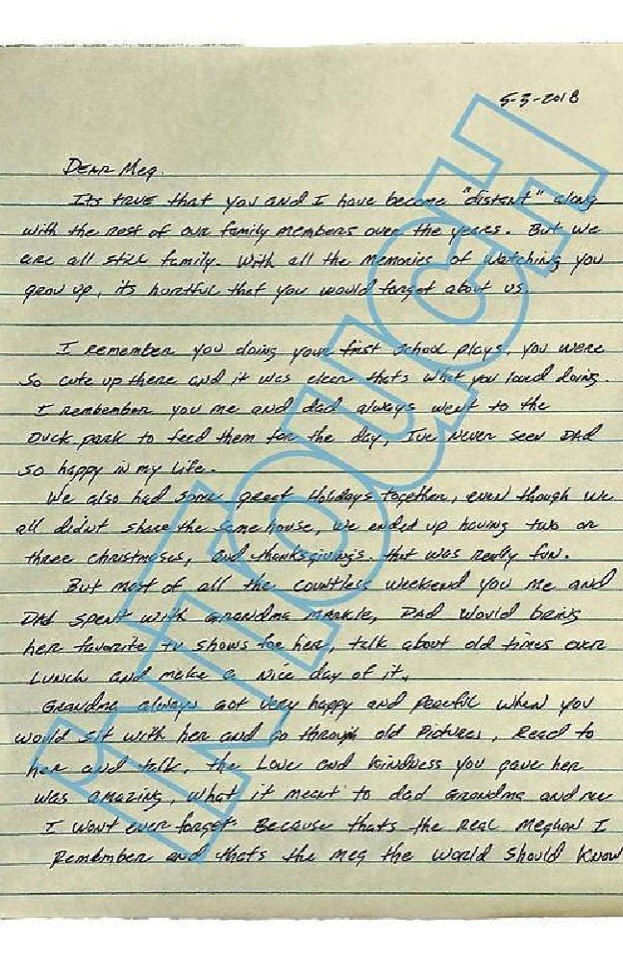 5-3-2018
Dear Meg.
Its true that you and I have become "distent" along
with the rest of our family members over the years. But we
are all still family. With all the memories of watching you
grow up, its hurtful that you would forget about us.
I remember you doing your first school plays, you were
so cute up there and it was clear thats what you loved doing.
I remember you me and dad always went to the
Duck park to feed them for the day, I've never seen DAD
so happy in my life.
We also had some great Holidays together, even though we
all didn't share the same house, we ended up having two or
three christmases, and thanksgivings. that was really fun.
But most of all the countless weekend you me and
DAD spent with Grandma Markle, DAD would bring
her favorite tv shows for her, talk about old times over
Lunch and make a nice day of it.
Grandma always got very happy and peaceful when you
would sit with her and go through old Pictures, Read to
her and talk. the Love and kindness you gave her
was amazing, what it meant to dad Grandma and me
I wont ever forget. Because thats the real Meghan I
Remember and thats the Meg the World should know
INTOUCH